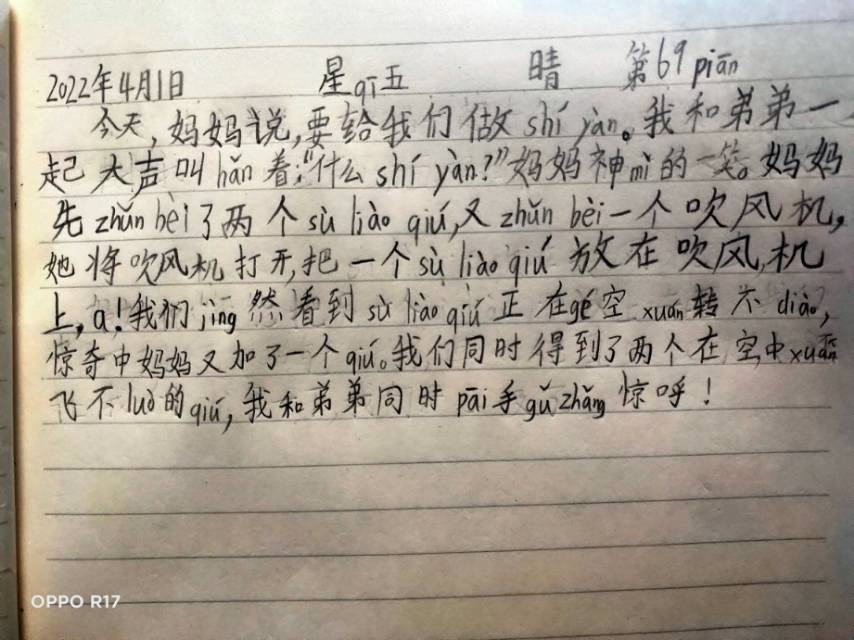 2022年4月1日 星qī五 晴 第69piān
今天,妈妈说,要给我们做shí yàn。我和弟弟一
起大声叫hǎn着:“什么shí yàn?”妈妈神mì的一笑。妈妈
先zhǔn bèi了两个sù liào qiú,又zhǔn bèi一个吹风机,
她将吹风机打开,把一个sù liào qiú放在吹风机
上,a!我们jìng然看到sù liào qiú正在gé空xuán转不diào,
惊奇中妈妈又加了一个qiú。我们同时得到了两个在空中xuán
飞不luò的qiú,我和弟弟同时pāi手gǔ zhǎng惊呼!
OPPO R17